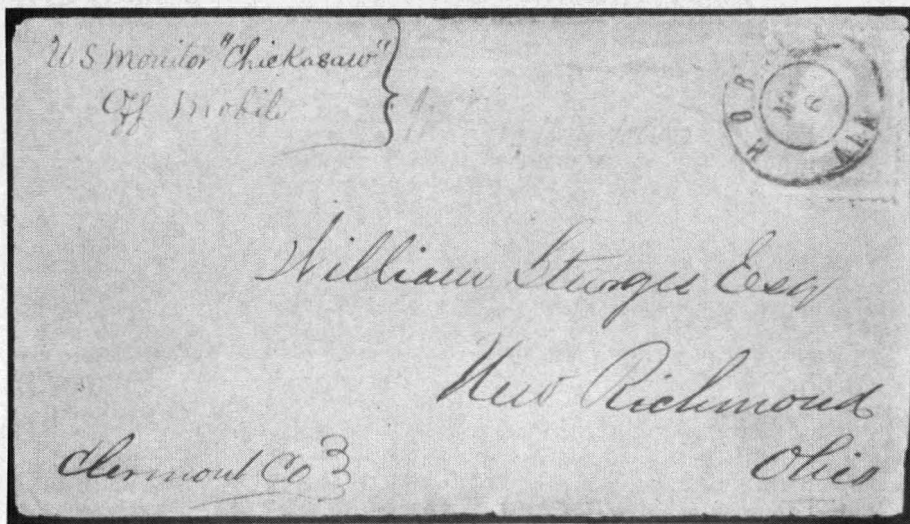 U S Monitor "Chickasaw"
Off Mobile
MOB ALA
William Sturges Esq
New Richmond
Clermont Co
Ohio